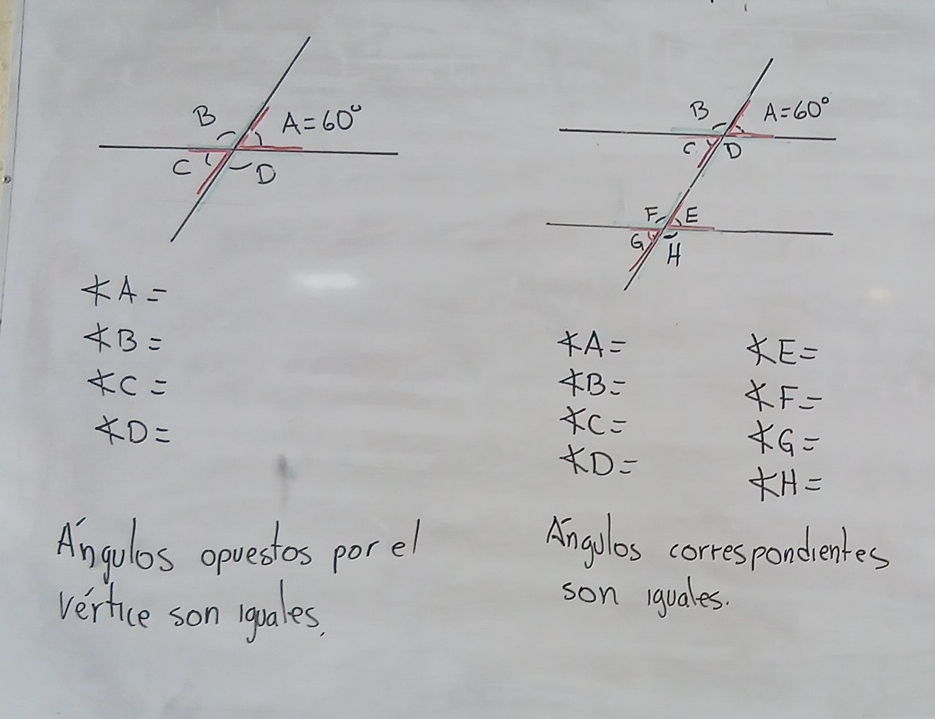 B
A=60°
C
D
∡A=
∡B=
∡C=
∡D=
Ángulos opuestos por el
vértice son iguales.
B
A=60°
C
D
F
E
G
H
∡A=
∡B=
∡C=
∡D=
∡E=
∡F=
∡G=
∡H=
Ángulos correspondientes
son iguales.